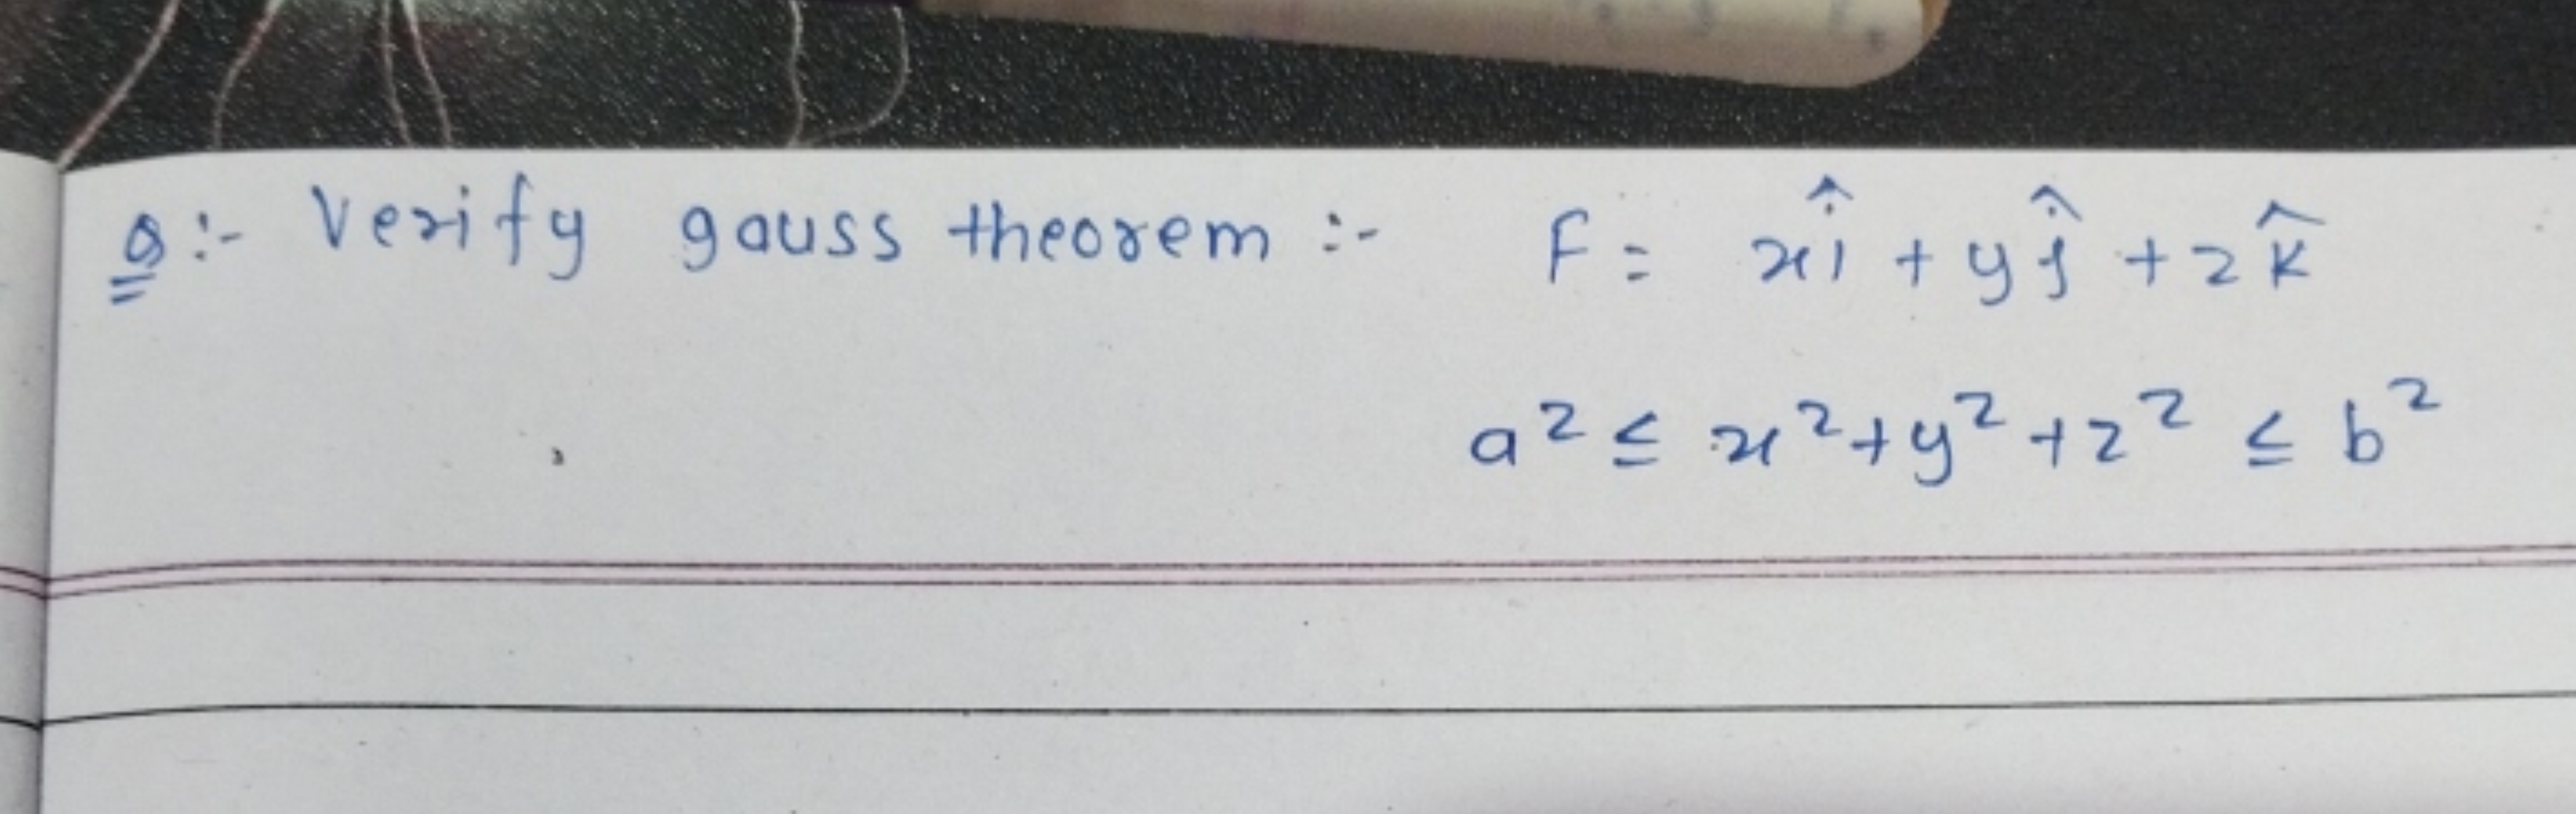 Q:- Verify gauss theorem :- F = xî + yĵ + zk̂
a² ≤ x²+y²+z² ≤ b²